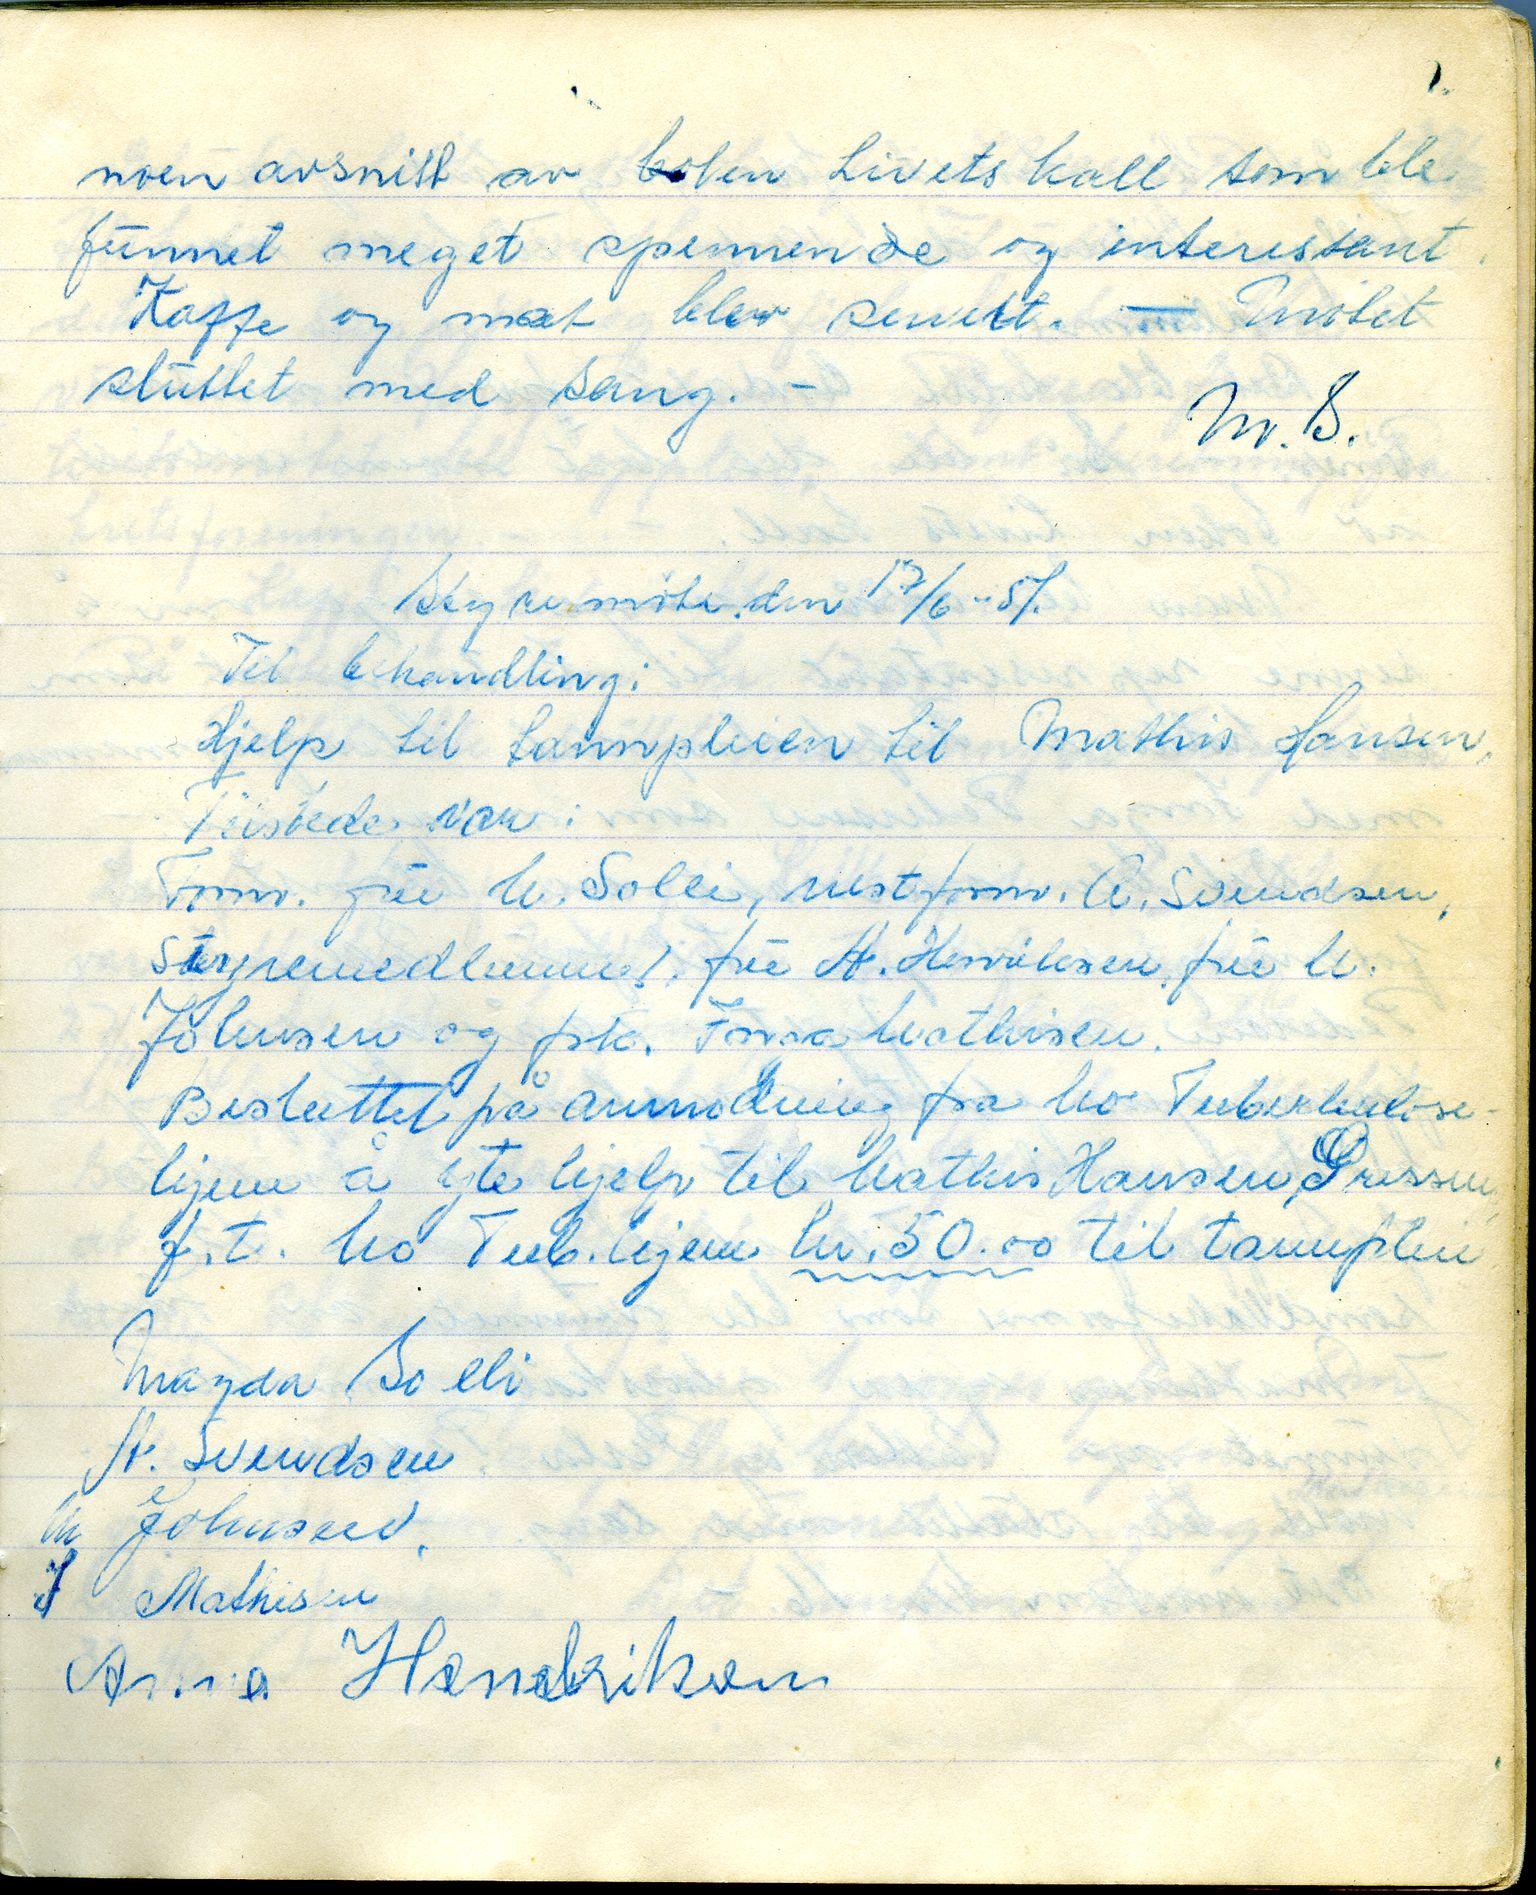 noen avsnitt av boken Livets kall som ble
funnet meget spennende og interessant.
Kaffe og mat blev servert. — Møtet
sluttet med sang. —
M. S.
Styremöte den 17/6 - 57.
Til behandling:
Hjelp til tannpleien til Mathis Hansen,
Tilstede var:
Form. frü M. Solli, nestform. A. Svendsen,
Styremedlemmer, frü A. Henriksen, frü M.
Johnsen og frk. Inga Mathisen.
Besluttet på anmodning fra Mo Tuberkulose-
hjem å yte hjelp til Mathis Hansen,
f.t. Mo Tub.hjem kr. 50.00 til tannpleie
Magda Solli
A. Svendsen
M Johnsen,
I Mathisen
Anna Hendriksen